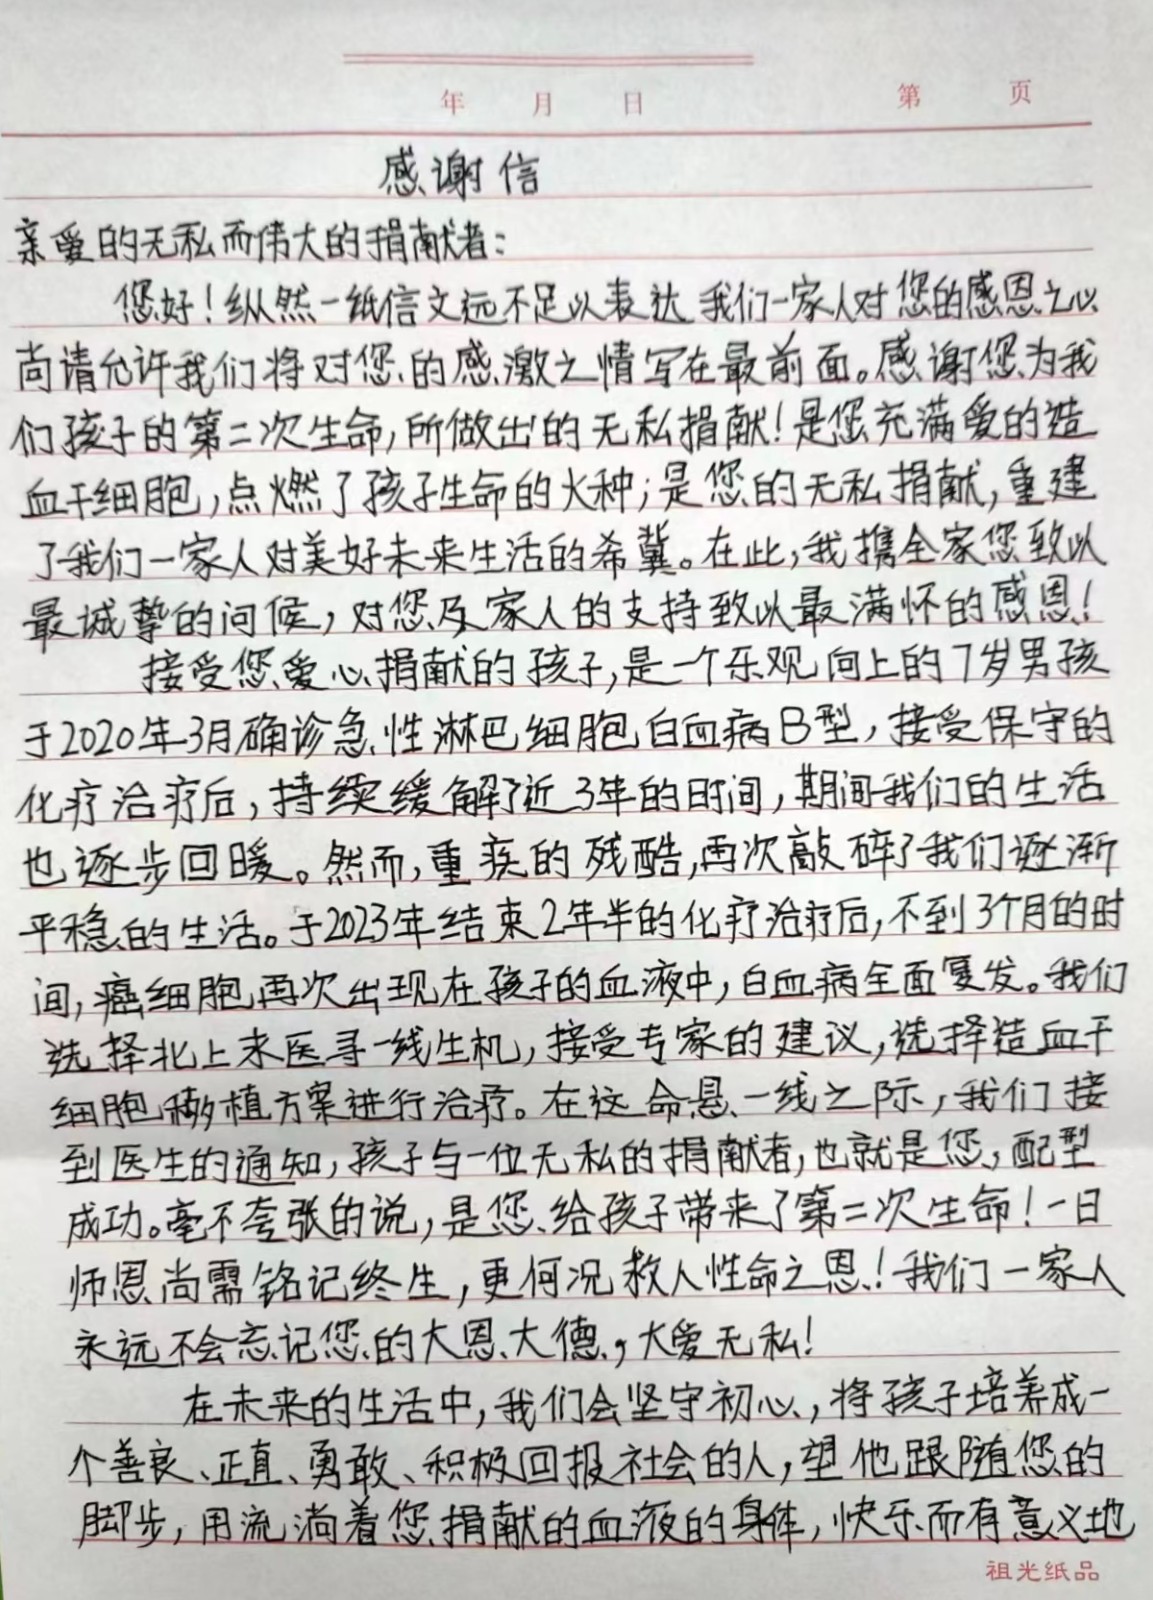 年 月 日 第 页
感谢信
亲爱的无私而伟大的捐献者：
您好！纵然一纸信文远不足以表达我们一家人对您的感恩之心
尚请允许我们将对您的感激之情写在最前面。感谢您为我
们孩子的第二次生命，所做出的无私捐献！是您充满爱的造
血干细胞，点燃了孩子生命的火种；是您的无私捐献，重建
了我们一家人对美好未来生活的希冀。在此，我携全家您致以
最诚挚的问候，对您及家人的支持致以最满怀的感恩！
接受您爱心捐献的孩子，是一个乐观向上的7岁男孩
于2020年3月确诊急性淋巴细胞白血病B型，接受保守的
化疗治疗后，持续缓解了近3年的时间，期间我们的生活
也逐步回暖。然而，重疾的残酷，再次敲碎了我们逐渐
平稳的生活。于2023年结束2年半的化疗治疗后，不到3个月的时
间，癌细胞再次出现在孩子的血液中，白血病全面复发。我们
选择北上求医寻一线生机，接受专家的建议，选择造血干
细胞移植方案进行治疗。在这命悬一线之际，我们接
到医生的通知，孩子与一位无私的捐献者，也就是您，配型
成功。毫不夸张的说，是您给孩子带来了第二次生命！一日
师恩尚需铭记终生，更何况救人性命之恩！我们一家人
永远不会忘记您的大恩大德，大爱无私！
在未来的生活中，我们会坚守初心，将孩子培养成一
个善良、正直、勇敢、积极回报社会的人，望他跟随您的
脚步，用流淌着您捐献的血液的身体，快乐而有意义地
祖光纸品